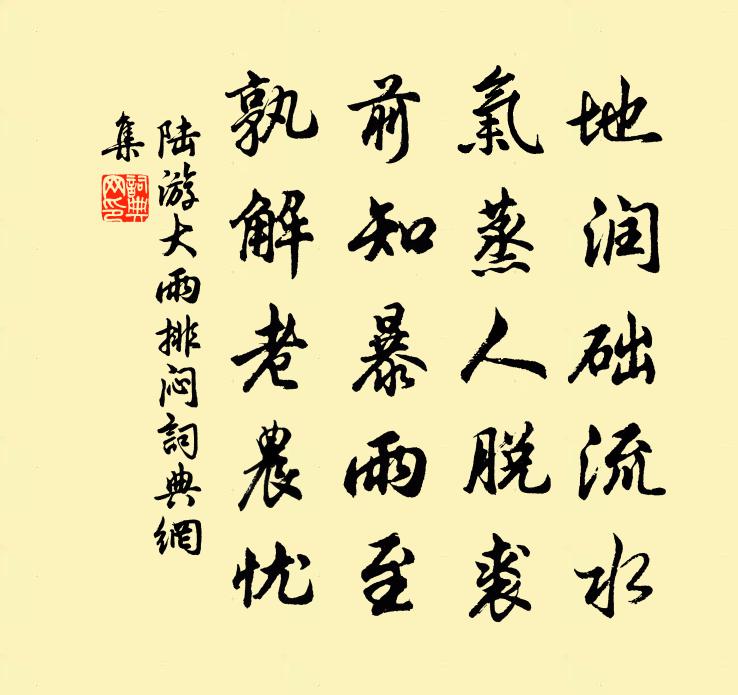 地润础流水
氣蒸人脱裘
前知暴雨至
孰解老農忧
陆游大雨排闷詞典網
集
詞典網印